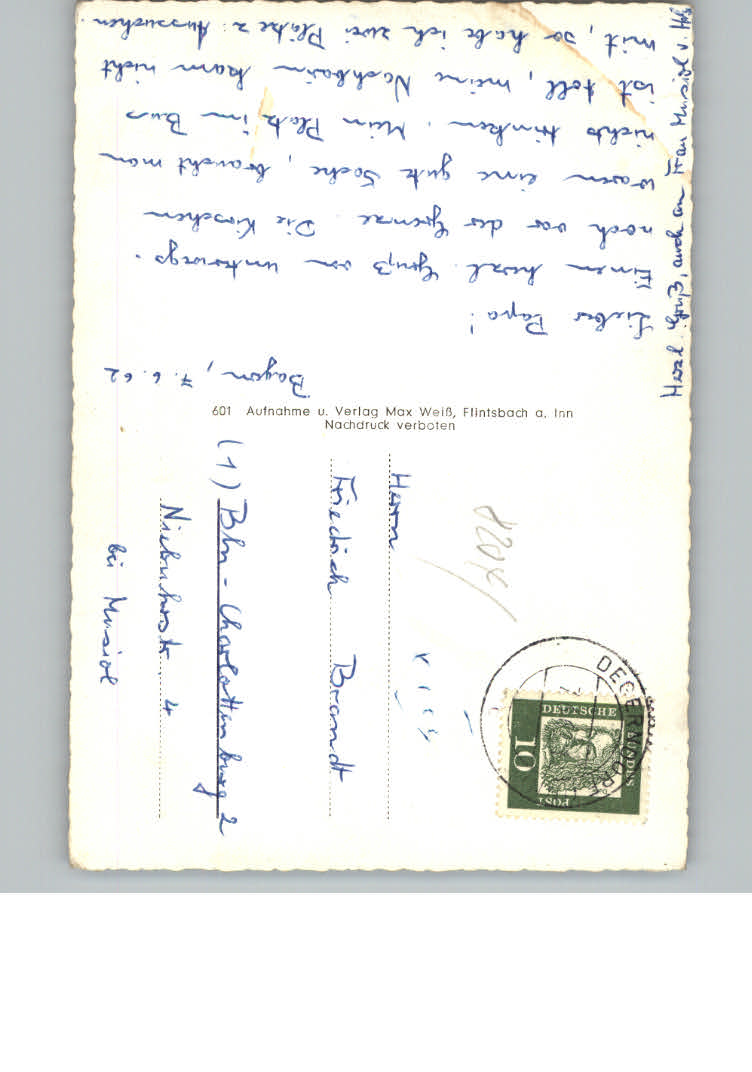 Bayern, 7.6.62
Lieber Papa!
Einen herzl. Gruß von unterwegs.
noch vor der Grenze. Die Kirschen
waren eine gute Sache, braucht man
nichts trinken. Mein Platz im Bus
ist toll, meine Nachbarin kam nicht
mit, so habe ich zwei Plätze z. Aussuchen.
Herzl. Gruß, auch an Frau Musiol v.
601 Aufnahme u. Verlag Max Weiß, Flintsbach a. Inn
Nachdruck verboten
Herrn
Friedrich Brandt
(1) Bln-Charlottenburg 2
Niebuhrstr. 4
bei Musiol
8204
DEGERNDORF
DEUTSCHE
BUNDES
POST
10